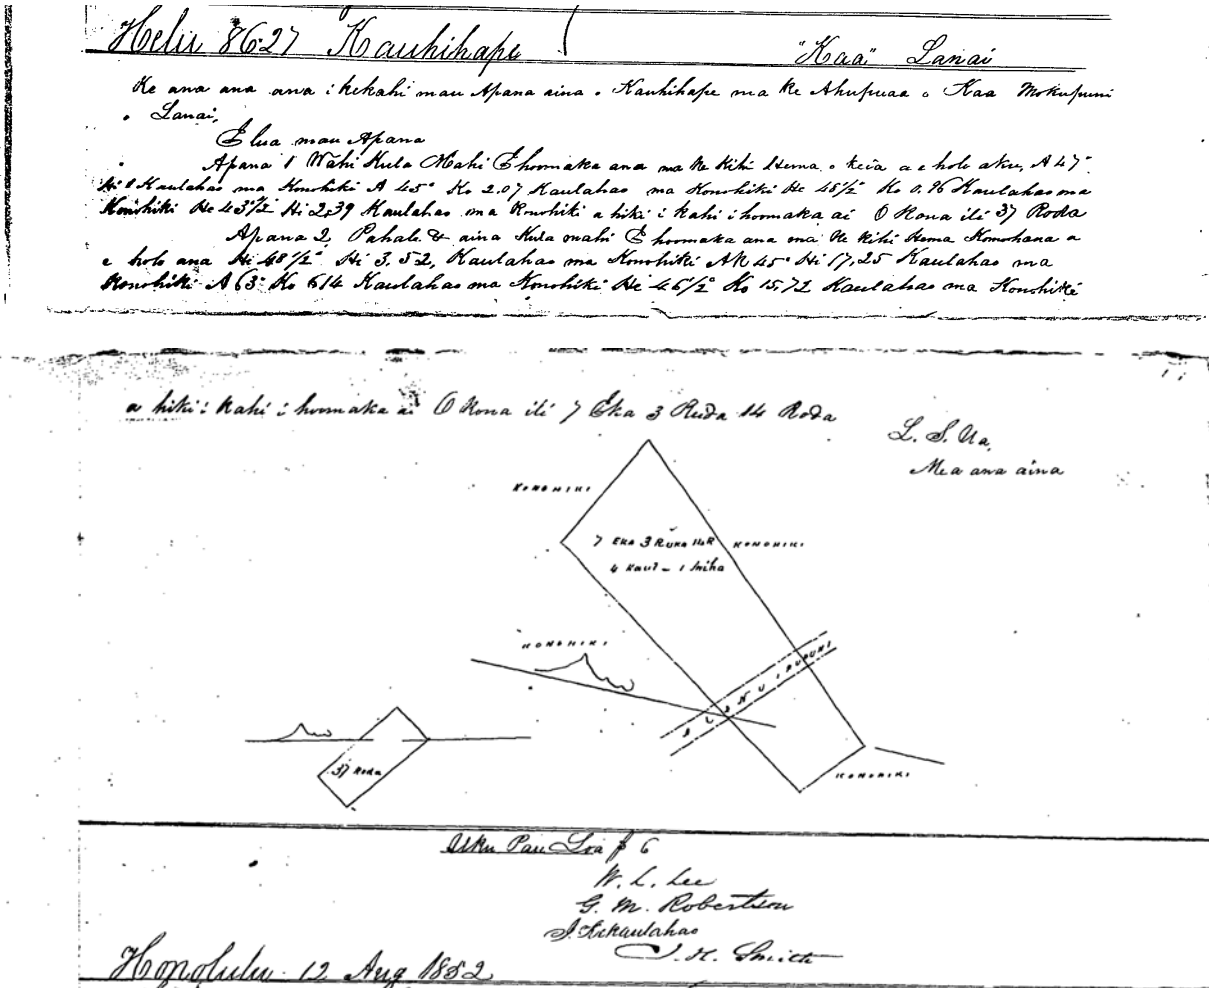 Helu 8627 Kauhihape "Kaa" Lanai
Ke ana ana ana i kekahi mau Apana aina o Kauhihape ma ke Ahupuaa o Kaa Mokupuni
o Lanai,
Elua mau Apana
Apana 1 Wahi Kula Mahi E hoomaka ana ma ke Kihi Hema o keia a e holo aku, A 47°
Hi 1 Kaulahao ma Konohiki A 45° Ko 2.07 Kaulahao ma Konohiki He 45½ Ko 0.96 Kaulahao ma
Konohiki He 43½ Hi 2,39 Kaulahao ma Konohiki a hiki i kahi i hoomaka ai O Kona ili 37 Roda
Apana 2, Pahale & aina Kula mahi E hoomaka ana ma ke kihi Hema Komohana a
e holo ana Hi 48½° Hi 3.52, Kaulahao ma Konohiki AK 45° Hi 17,25 Kaulahao ma
Konohiki A 63° Ko 614 Kaulahao ma Konohiki He 46½° Ko 15,72 Kaulahao ma Konohiki
a hiki i kahi i hoomaka ai O Kona ili 7 Eka 3 Ruda 14 Roda
L. S. Ua,
Mea ana aina
KONOHIKI
7 EKA 3 RUKA 14R KONOHIKI
4 Kaul – 1 Iniha
KONOHIKI
ALANUI AUPUNI
37 Roda
KONOHIKI
Uku Pau Loa $ 6
W. L. Lee
G. M. Robertson
J. Kekaulahao
J. H. Smith
Honolulu 12 Aug 1852